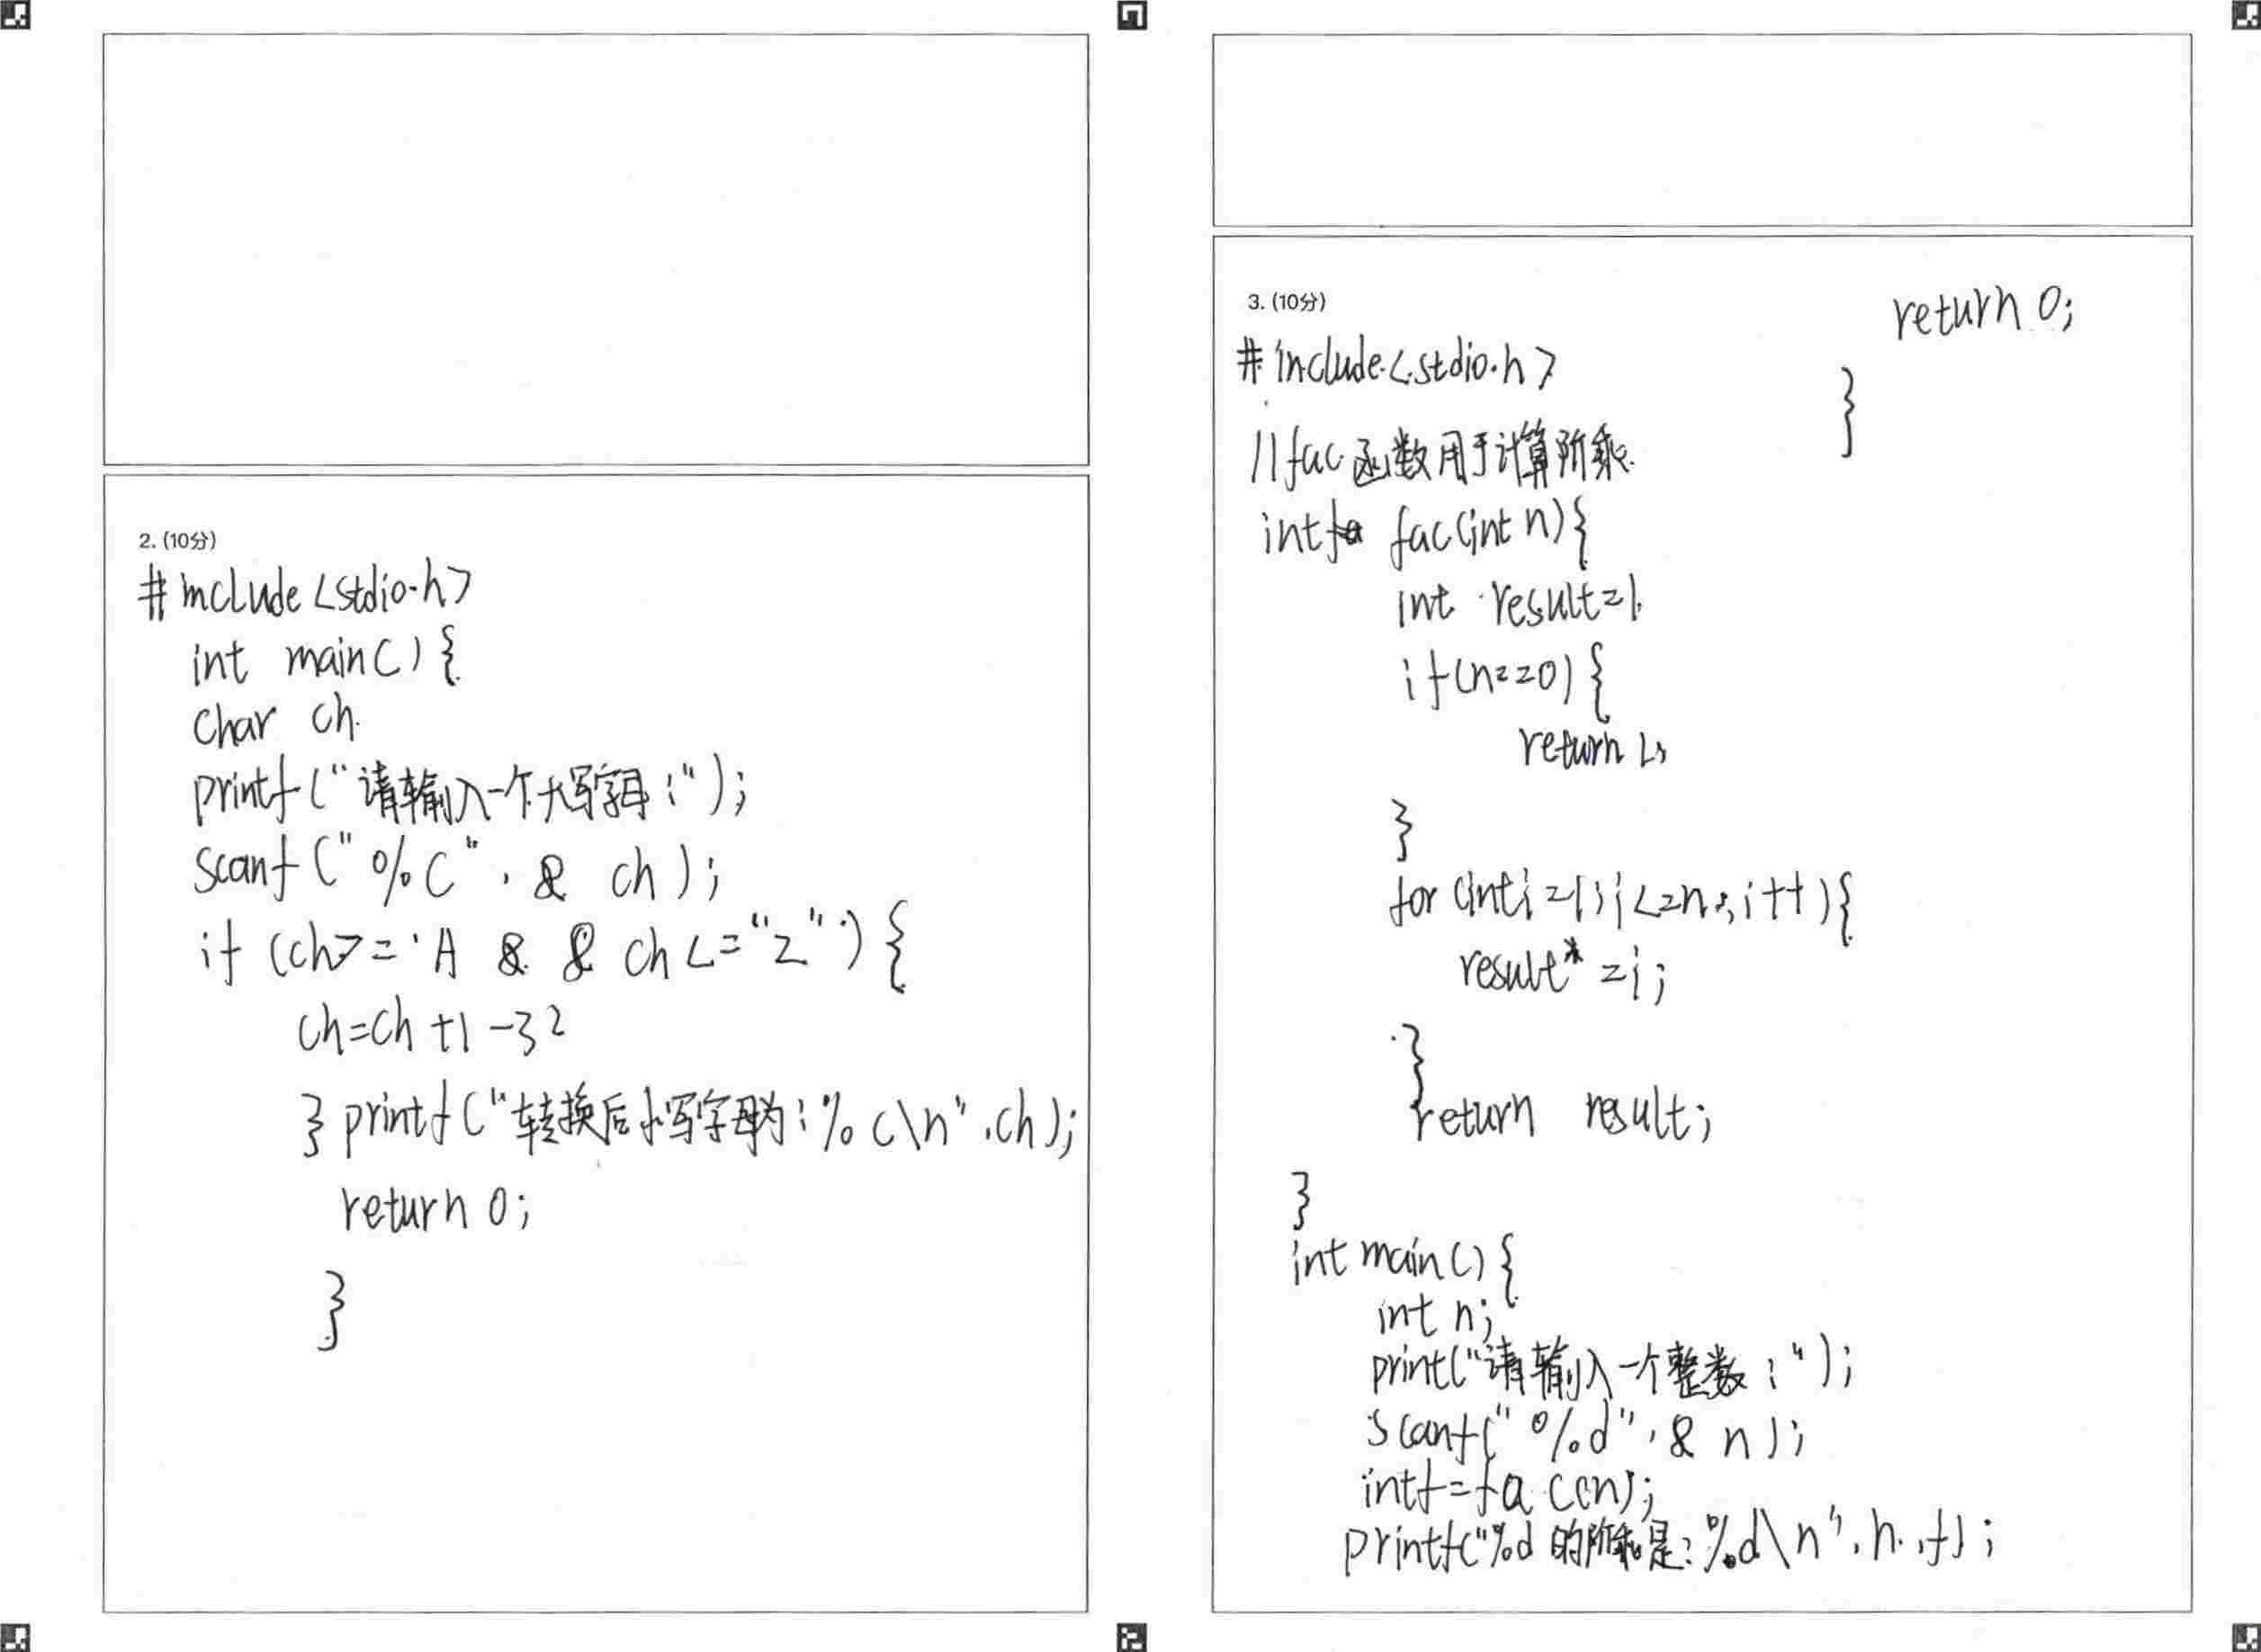 2. (10分)
#include<stdio.h>
int main(){
char ch.
printf("请输入一个大写字母:");
scanf("%c",& ch);
if (ch>='A & & ch<="Z"){
ch=ch+1-32
} printf("转换后小写字母为:%c\n",ch);
return 0;
}
3. (10分)
#include<stdio.h>
//fac函数用于计算阶乘.
int fac(int n){
int result=1.
if(n==0){
return 1;
}
for(int i=1;i<=n;i++){
result*=i;
}
return result;
}
int main(){
int n;
print("请输入一个整数:");
scanf("%d",& n);
int f=fac(n);
printf("%d的阶乘是:%d\n",n,f);
return 0;
}